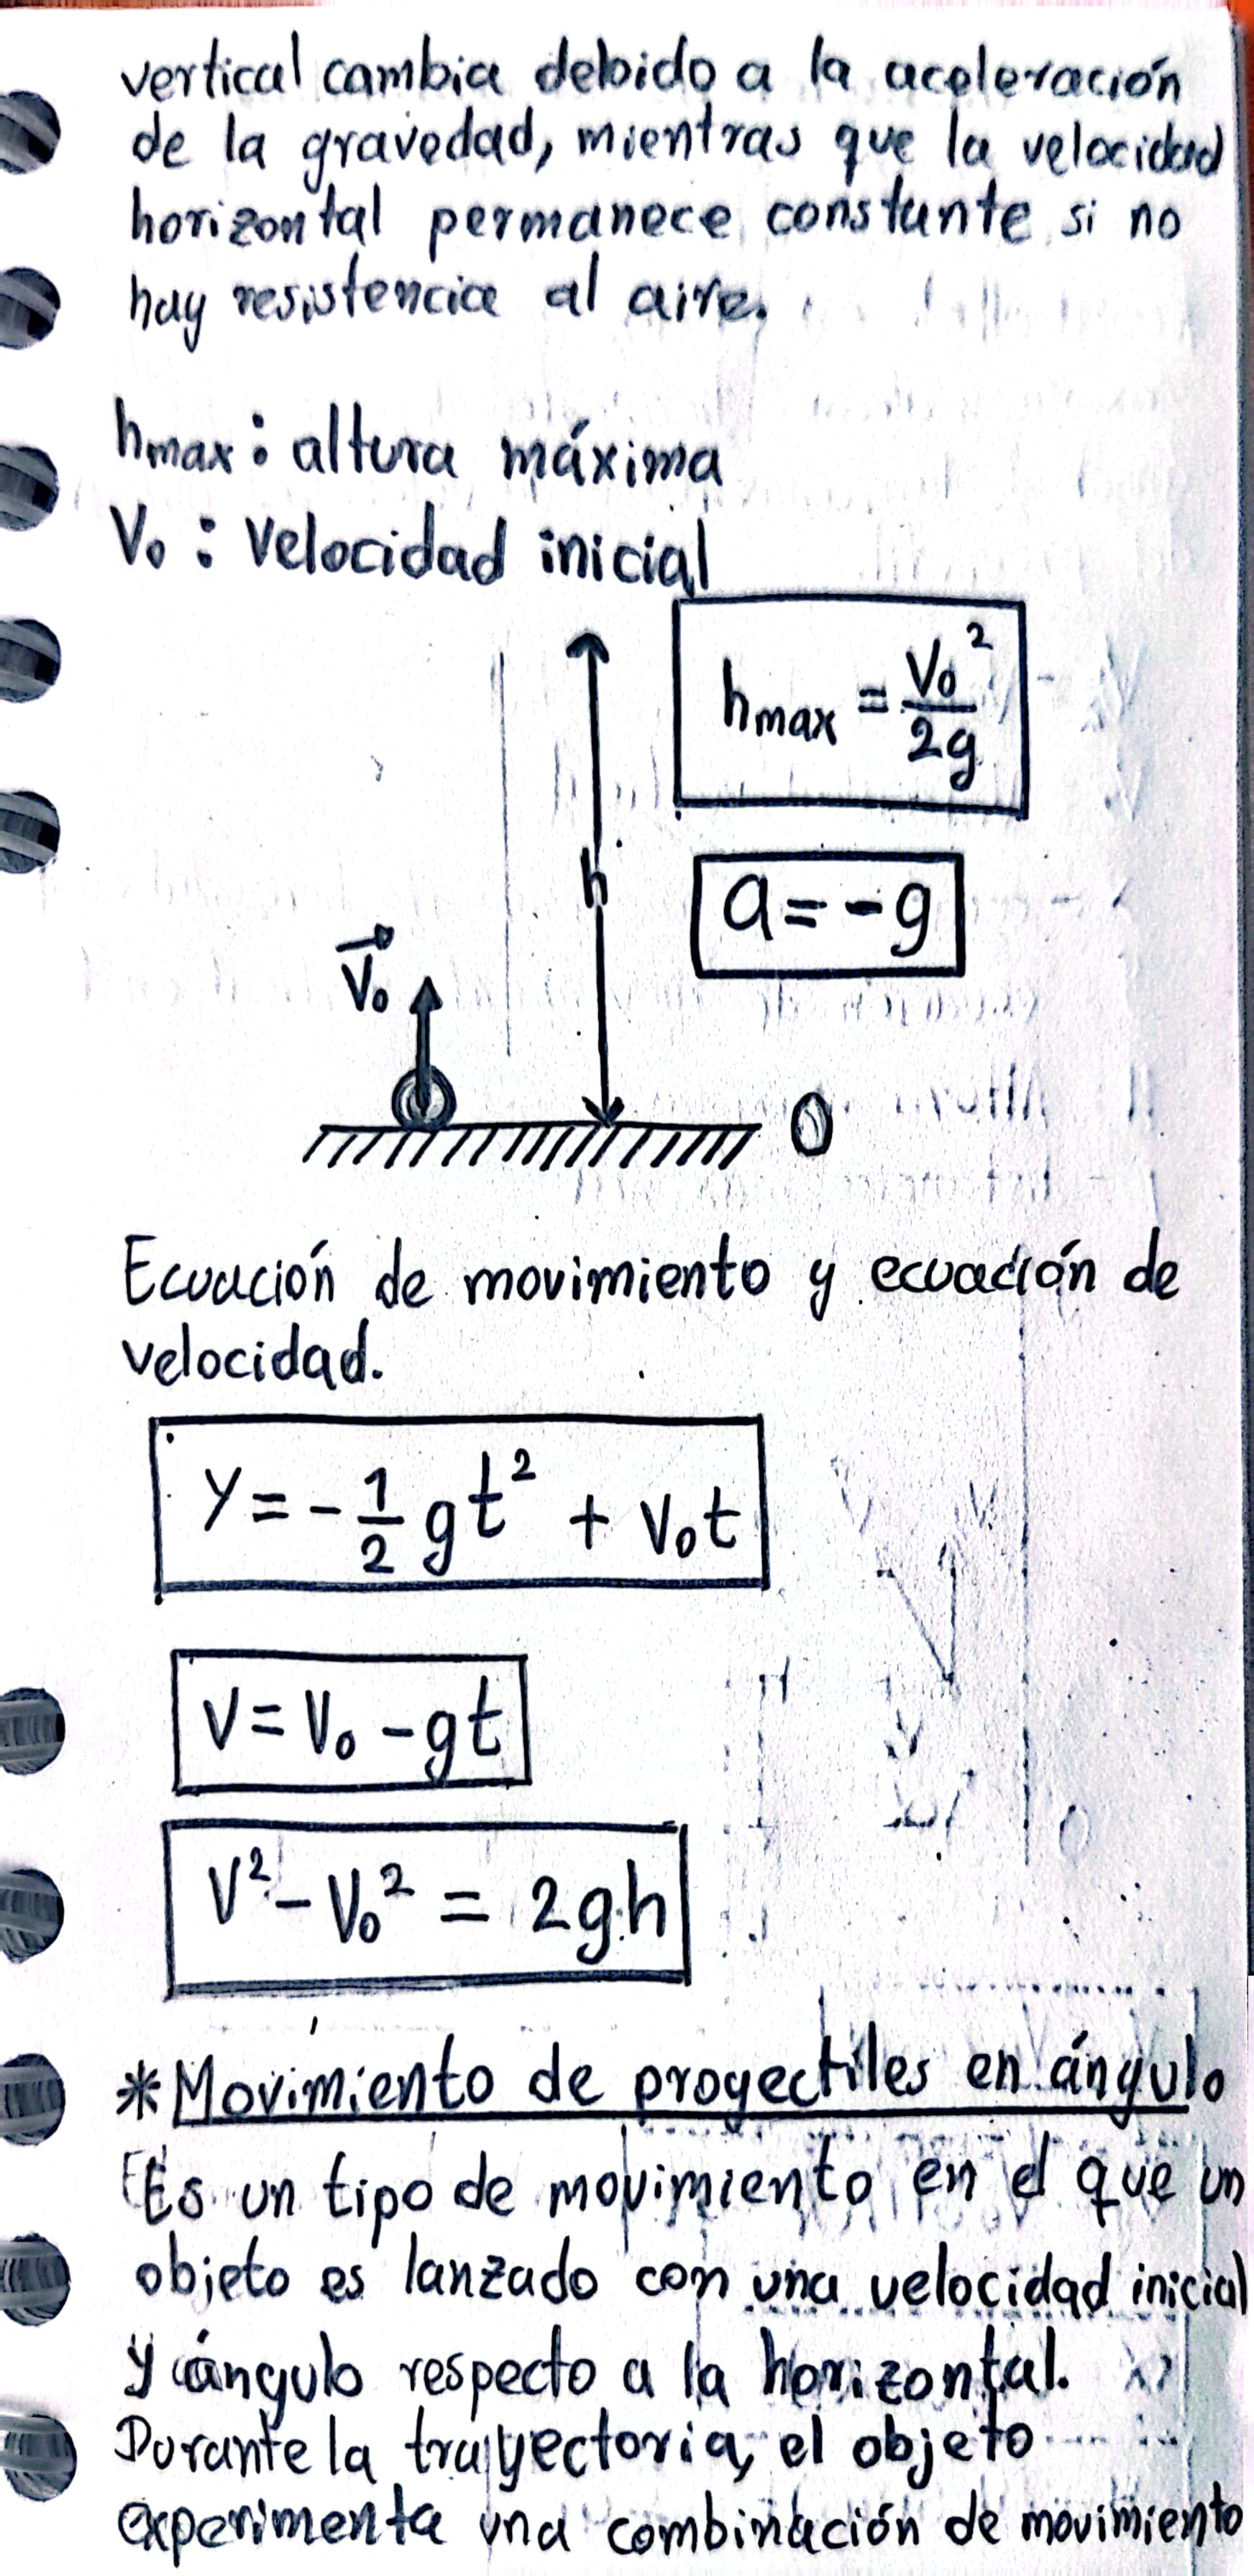 vertical cambia debido a la aceleración
de la gravedad, mientras que la velocidad
horizontal permanece constante si no
hay resistencia al aire.
hmax: altura máxima
V₀: Velocidad inicial
hmax = V₀²/2g
h
a = -g
V⃗₀
0
Ecuación de movimiento y ecuación de
velocidad.
Y = - 1/2 gt² + V₀t
V = V₀ - gt
V² - V₀² = 2gh
*Movimiento de proyectiles en ángulo
Es un tipo de movimiento en el que un
objeto es lanzado con una velocidad inicial
y ángulo respecto a la horizontal.
Durante la trayectoria, el objeto
experimenta una combinación de movimiento